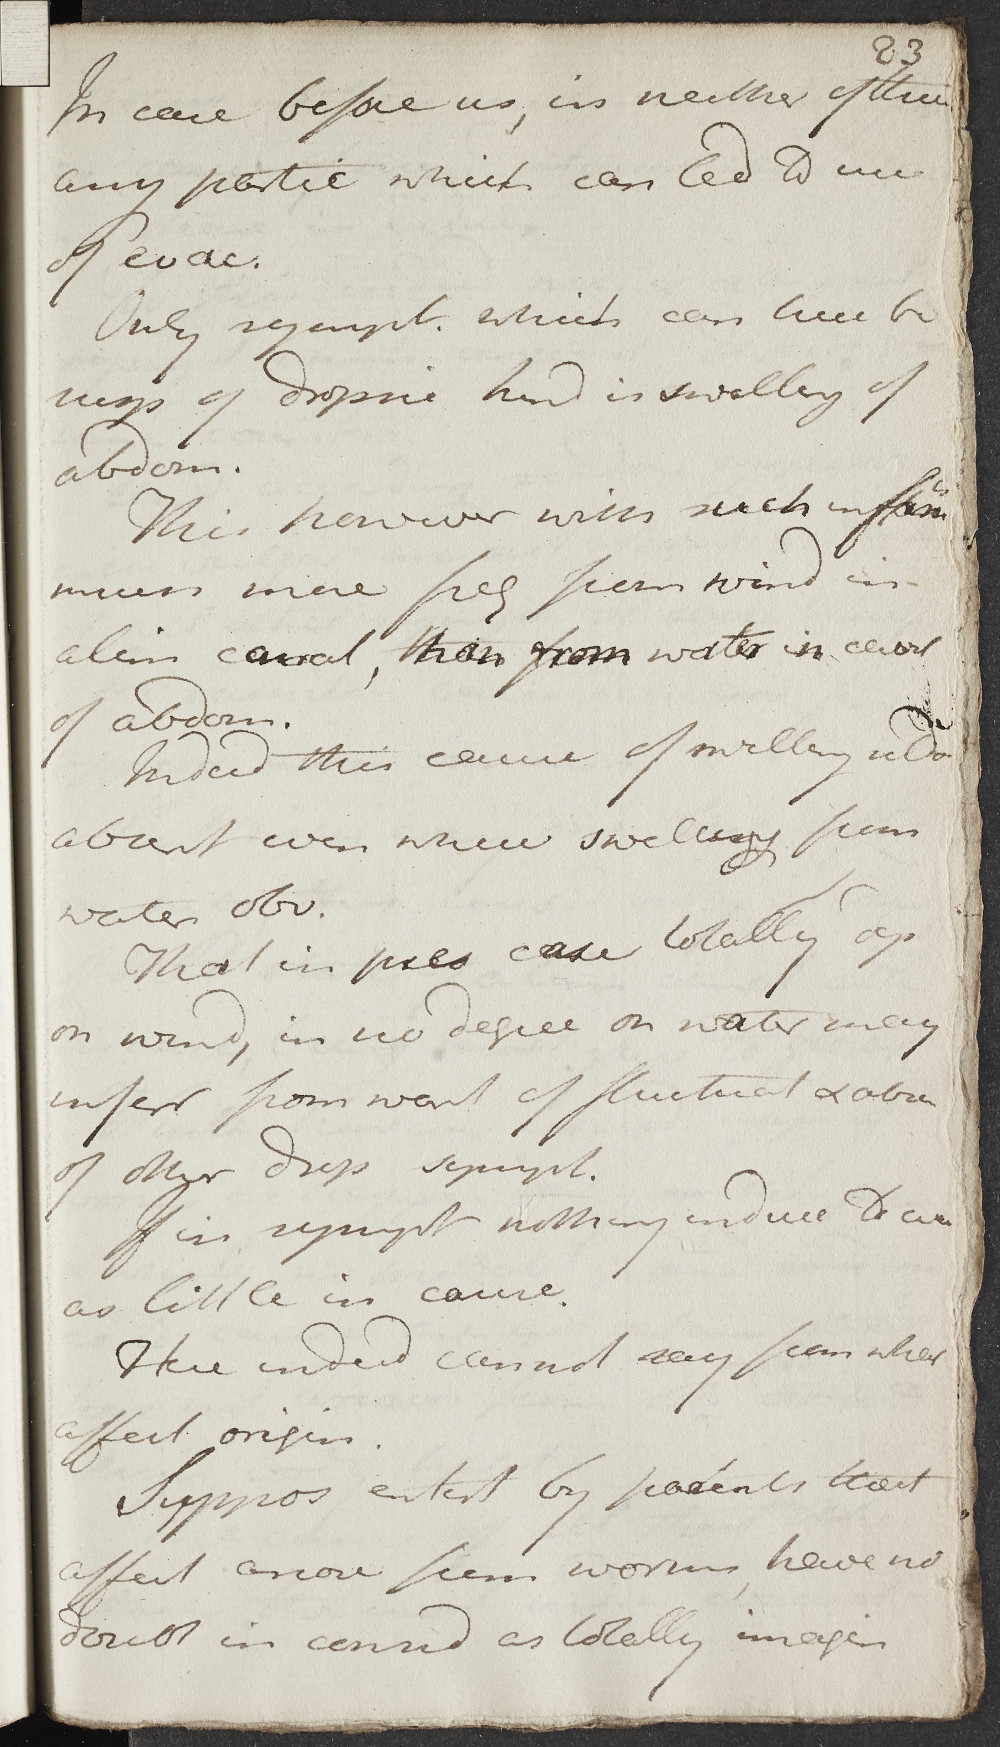 23
In case before us, in neither of these
any partic which can led to use
of evac.
Only sympt. which can here be
susp of dropsie kind is swelling of
abdom.
This however with such infants
much more freq from wind in
alim canal, than from water in cavit
of abdom.
Indeed this cause of swelling seldo
absent even where swelling from
water obv.
That in pres case totally dep
on wind, in no degree on water may
inferr from want of fluctuat & absen
of other drop sympt.
If in sympt nothing induce to evac
as little in cause.
Here indeed cannot say from what
affect origin.
Suppos entert by parents that
affect arose from worms, have no
doubt in consid as totally imagin